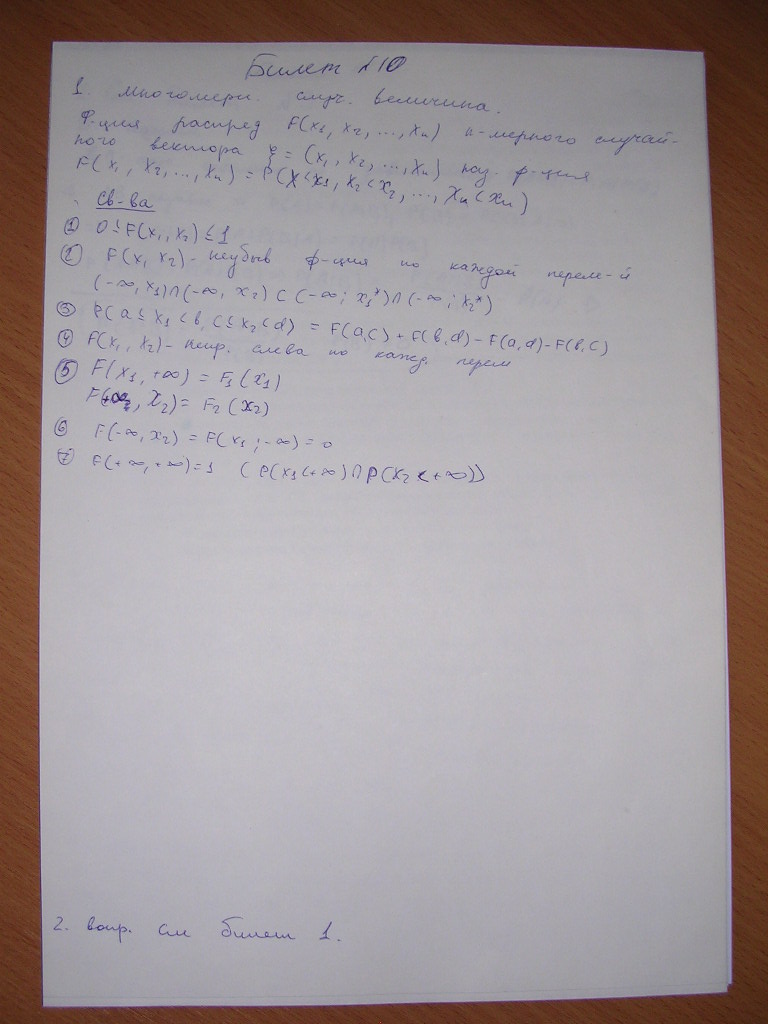 Билет №10
1. многомерн. случ. величина.
Ф-ция распред F(x₁, x₂, ..., xₙ) n-мерного случай-
ного вектора ξ = (x₁, x₂, ..., xₙ) наз. ф-ция
F(x₁, x₂, ..., xₙ) = P(X<x₁, X₂<x₂, ..., Xₙ<xₙ)
Св-ва
① 0≤F(x₁, x₂)≤1
② F(x, x₂) - неубыв ф-ция по каждой перем-й
(-∞, x₁)∩(-∞, x₂) ⊂ (-∞; x₁*)∩(-∞; x₂*)
③ P(a≤x₁<b, c≤x₂<d) = F(a,c) + F(b,d) - F(a,d) - F(b,c)
④ F(x₁, x₂) - непр. слева по кажд. перем
⑤ F(x₁, +∞) = F₁(x₁)
F(+∞, x₂) = F₂(x₂)
⑥ F(-∞, x₂) = F(x₁; -∞) = 0
⑦ F(+∞, +∞)=1 (P(x₁<+∞)∩P(x₂<+∞))
2. вопр. см билет 1.